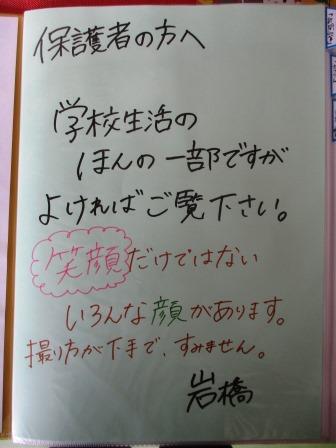 保護者の方へ
学校生活の
ほんの一部ですが
よければご覧下さい。
笑顔だけではない
いろんな顔があります。
撮り方が下手で、すみません。
岩橋